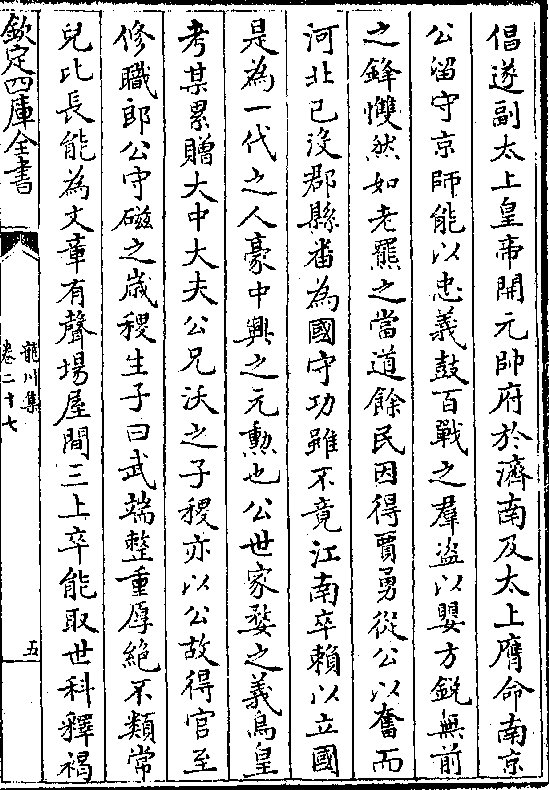 倡遂副太上皇帝開元帥府於濟南及太上膺命南京
公留守京師能以忠義鼓百戰之羣盜以嬰方鋭無前
之鋒慨然如老羆之當道餘民因得賈勇從公以奮而
河北已沒郡縣畨為國守功雖不竟江南卒賴以立國
是為一代之人豪中興之元勲也公世家婺之義烏皇
考某累贈大中大夫公兄沃之子稷亦以公故得官至
修職郎公守磁之歳稷生子曰武端整重厚絶不類常
兒比長能為文章有聲塲屋間三上卒能取世科釋褐
欽定四庫全書
龍川集
卷二十七
五